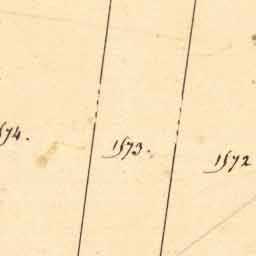 574.
1573.
1572